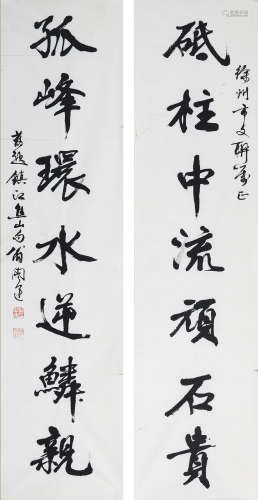 砥柱中流頑石貴
徐州市文联藏正
孤峰環水逆鱗親
茲題鎮江焦山句